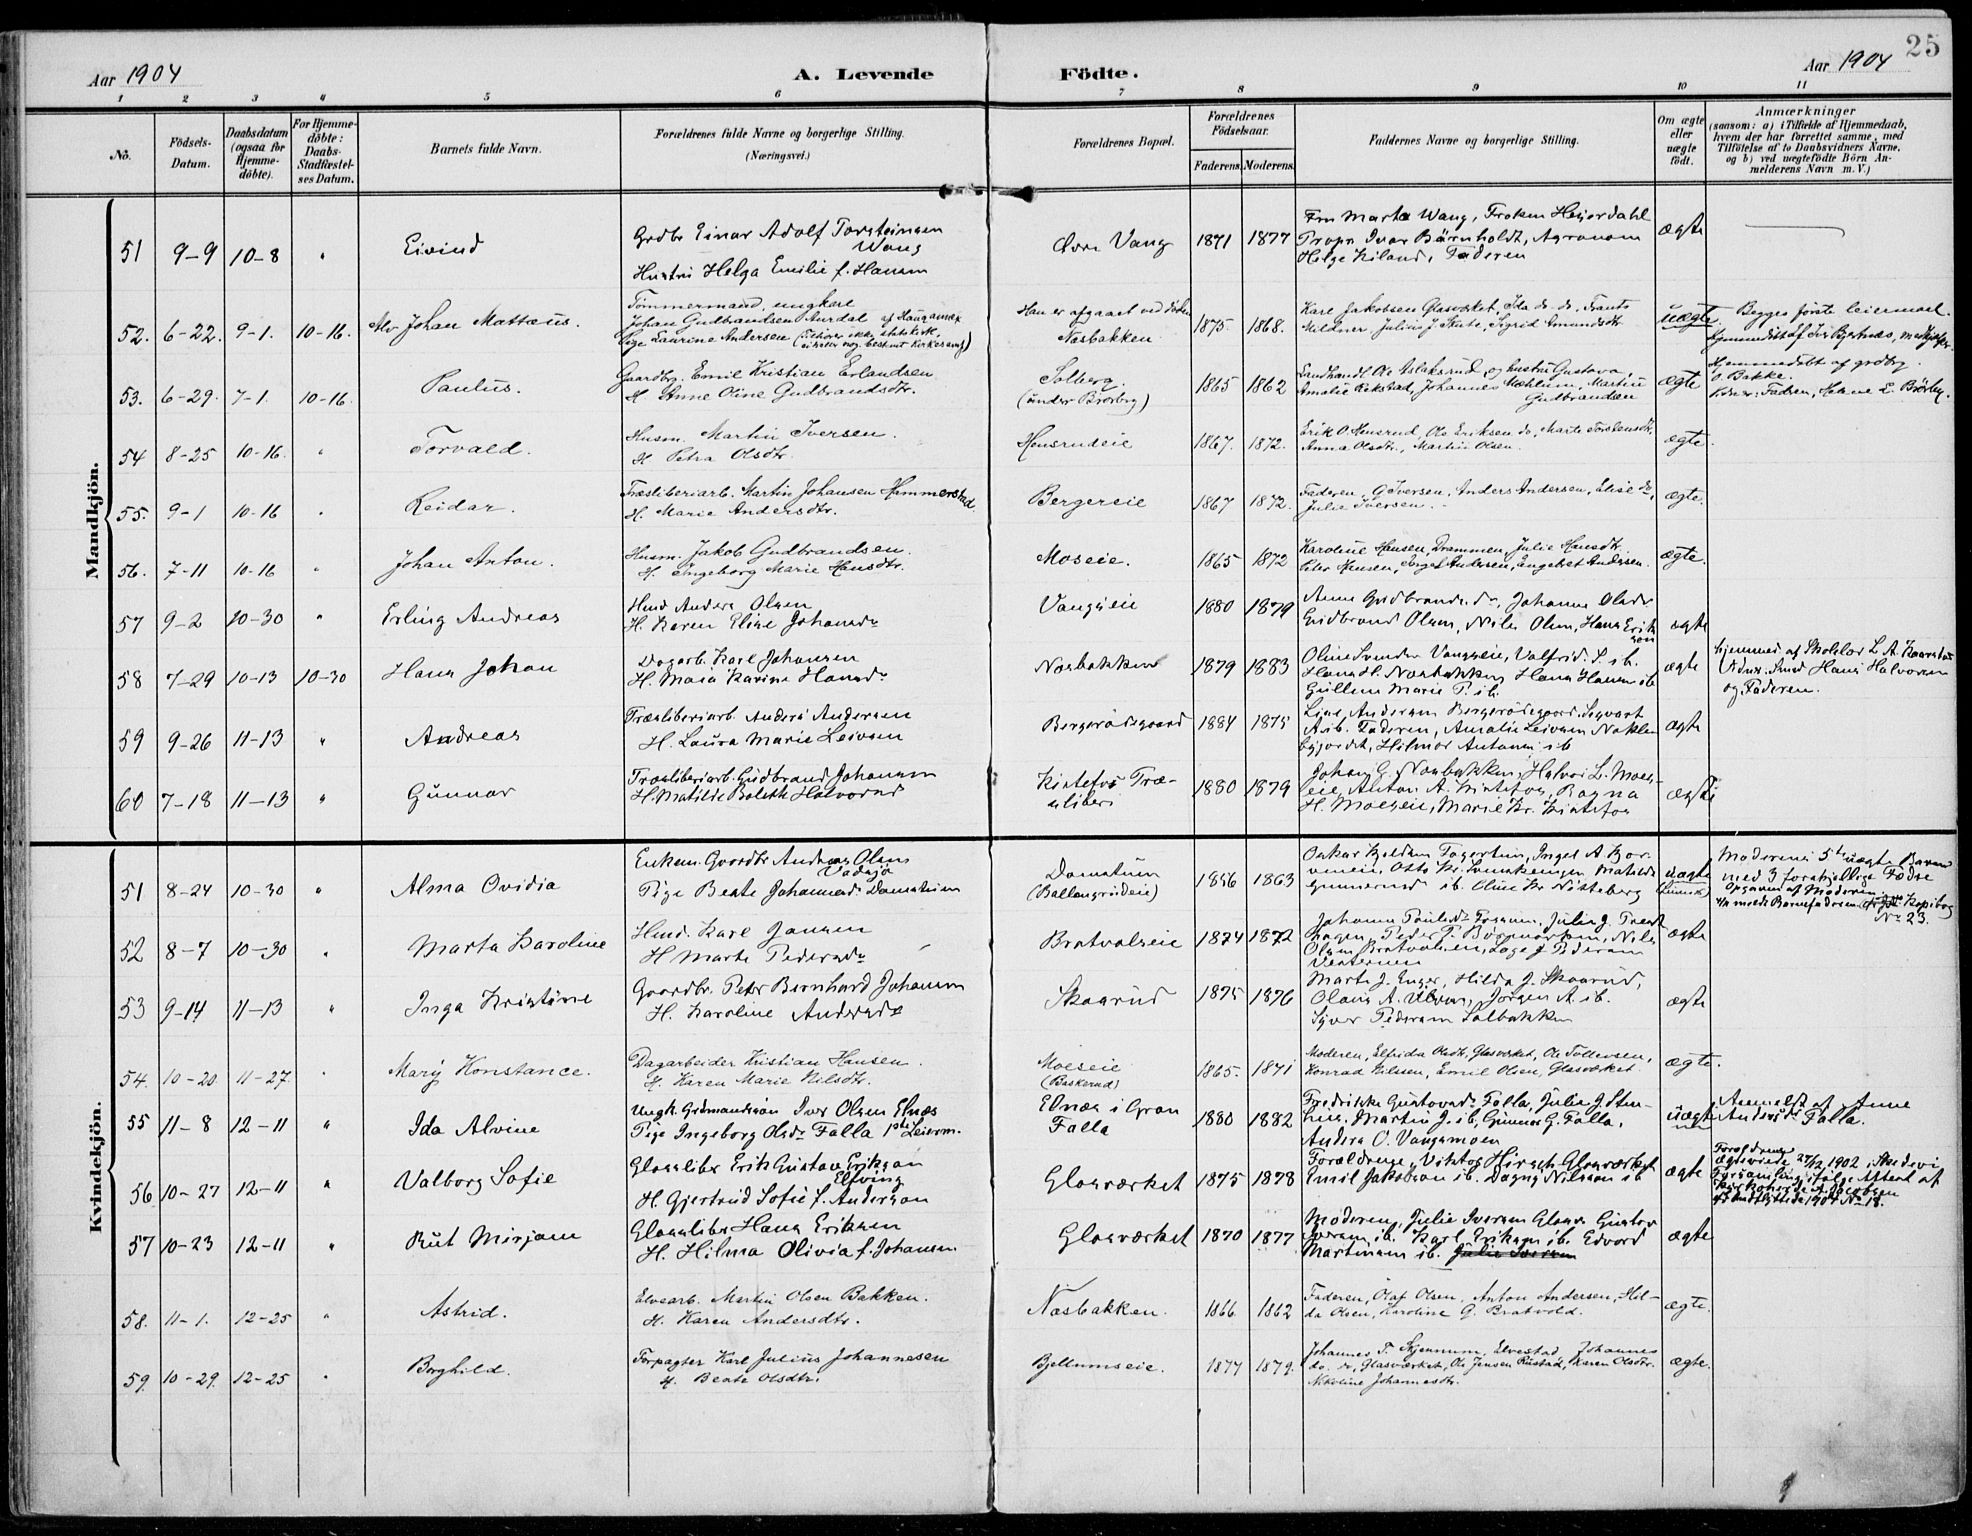 25
Aar 1904 A. Levende Födte. Aar 1904
1 2 3 4 5 6 7 8 9 10 11
No.
Födsels-Datum.
Daabsdatum (ogsaa for Hjemme-döbte).
For Hjemme-döbte: Daabs-Stadfæstel-ses Datum.
Barnets fulde Navn.
Forældrenes fulde Navne og borgerlige Stilling.
(Næringsvei.)
Forældrenes Bopæl.
Forældrenes Födselsaar.
Faderens. Moderens.
Faddernes Navne og borgerlige Stilling.
Om ægte eller uægte födt.
Anmærkninger
(saasom: a) i Tilfælde af Hjemmedaab,
hvem der har forrettet samme, med
Tilföielse af to Daabsvidners Navne,
og b) ved uægtefödte Börn An-
melderens Navn m. V.)
Mandkjön.
51 9-9 10-8 " Eivind
Grdbr Einar Adolf Torsteinsen
Wang
Hustru Helga Emilie f. Hansen
Øvre Vang 1871 1877
Fru Marta Wang, Frøken Hesjordahl
Propr Ivar Bärnholdt, Agronom
Helge Kiland, Faderen
ægte
52. 6-22. 9-1. 10-16. Alv Johan Mattæus.
Tømmermand, ungkarl
Johan Gudbrandsen Aurdal af Haugamex
Pige Laurine Andersen
Han er afgaaet ved døden
Næsbakken. 1875. 1868.
Karl Jakobsen Glasverket, Ida do. do, Frants
Meldner, Julius J. Skute, Sigrid Amundsdtr.
uægte. Begges første leiermaal.
53. 6-29. 7-1. 10-16. Paulus.
Gaardbr. Emil Kristian Erlandsen
H. Anne Oline Gudbrandsdtr.
Solberg.
(under Brørby) 1865 1862
Landhandl. Ole Aslaksrud og hustru Gustava,
Amalie Rekstad, Johannes Mæhlum, Martin
Gudbrandsen
ægte
Hjemmedøbt af grdbr.
O. Bakke.
Vidner: Fadren, Helene E. Brørby.
54 8-25 10-16. " Torvald.
Husm. Martin Iversen.
H. Petra Olsdtr.
Hensrudeie 1867. 1872.
Erik O. Hensrud, Ole Eriksen do, Marte Torstensdtr.
Anna Olsdtr., Martin Olsen.
ægte.
55. 9-1 10-16 " Reidar.
Træsliberiarb. Martin Johansen Hammerstad.
H. Marie Andersdtr.
Bergereie 1867 1872.
Faderen, G. Iversen, Anders Andersen, Elise do,
Julie Iversen.
ægte.
56. 7-11 10-16 " Johan Anton.
Husm. Jakob Gudbrandsen.
H. Ingeborg Marie Hansdtr.
Moseie. 1865 1872
Karoline Hansen, Drammen, Julie Hansdtr.
Peter Hansen, Inge Andersen, Engebret Andersen.
ægte.
57 9-2 10-30 " Erling Andreas
Hmd Anders Olsen
H. Karen Elise Johansdr
Vangseie 1880 1879
Anne Gudbrandsdr, Johanne Olsdr
Gudbrand Olsen, Nils Olsen, Hans Erik
sen
ægte
58 7-29 10-13 10-30 Hans Johan
Dagarb. Karl Johansen
H. Maia Karine Hansdr
Næsbakken 1879 1883
Oline Svendsr Vangseie, Valfrid S. ib.
Hans H. Næsbakken, Hans Hansen ib
Gullena Marie P. ib.
ægte
hjemmed af Skolelær L. A. Kaarstad
Vidner. Smed Hans Halvorsen
og Faderen.
59 9-26 11-13 " Andreas
Træsliberiarb. Anders Andersen
H. Laura Marie Leivsen
Bergerødegaard 1884 1875
Lise Andersen Bergerødegaard, Sigvart
A. ib. Faderen, Amalie Leivsen Nøkle
byjordet, Hilmar Antonsen ib
ægte
60 7-18 11-13 " Gunnar
Træsliberiarb. Gudbrand Johansen
H. Matilde Boleth Halvorsd
Kistefos Træ-
sliberi 1880 1879
Johan G. Næsbakken, Halvor L. Moes-
eie, Anton A. Kistefos, Ragna
H. Moeseie, Marie Kr. Kistefos
ægte
Kvindekjön.
51 8-24 10-30 " Alma Ovidia
Enkem. Gaardbr Andreas Olsen
Vadsjø
Pige Beate Johannesdr Damstuen
Damstuen
(Ballangrudeie) 1856 1863
Oskar Kjeldsen Fagertun, Ingel A. Bjør-
ib. Oline Kr. Nitteberg
uægte
Moderens 5te uægte Barn
med 3 forskjellige Fædre
Opgaven af Moderen.
Kopibog
No 23.
52 8-7 10-30 " Marta Karoline
Hmd. Karl Jansen
H Marte Pedersdr
Bratvalseie 1874 1872
Johanna Paulsdr Fossum, Julie J. Trant
hagen, Peder P. Bjørnerstuen, Nils
Olsen Bratvalseie, Lage J. Pedersen
Vesternen
ægte
53 9-14 11-13 " Inga Kristine
Gaardbr. Peter Bernhard Johansen
H. Karoline Andersdr
Skaarud 1875 1876
Marte J. Enger, Hilda J. Skaarud,
Olaus A. Ulven, Jörgen A. ib.
Syver Pedersen Solbakken
ægte
54. 10-20 11-27. " Mary Konstance.
Dagarbeider Kristian Hansen.
H. Karen Marie Nilsdtr.
Moeseie
(Baskerud) 1865. 1871
Moderen, Elfrida Olsdtr, Glasverket, Ole Tollevsen,
Konrad Nilssen, Emil Olsen, Glasverket.
ægte.
55 11-8 12-11 " Ida Alvine
Ungk. Grdmandssøn Iver Olsen Elnæs
Pige Ingeborg Olsdr Falla 1ste Leierm.
Elnæs i Gran
Falla 1880 1882
Fredrikke Gustavsdr Falla, Julie J. Sten-
hus, Martin J. ib, Gunnar G. Falla,
Anders O. Vangsmoen
uægte
Anmeldt af Anne
Andersdr Falla.
56 10-27 12-11 " Valborg Sofie
Glassliber Erik Gustav Eriksson
Elfving
H. Gjertrud Sofie f. Anderson
Glasværket 1875 1878
Forældrene, Viktor Hirsch Glasværket
Emil Jakobsen ib. Dagny Nilsson ib
ægte
Forældrene
ægteviede 27/2 1902, Skedevi
Forsamling ifølge Attest af
57 10-23 12-11 " Rut Mirjam
Glassliber Hans Eriksen
H. Hilma Olivia f. Johansen
Glasværket 1870 1877
Moderen, Julie Iversen Glasv. Gustav
Iversen ib. Karl Eriksen ib. Edvard
Martinsen ib. Julie Iversen
ægte
58. 11-1. 12-25 " Astrid.
Elvearb. Martin Olsen Bakken.
H. Karen Andersdtr.
Næsbakken. 1866 1862
Faderen, Olaf Olsen, Anton Andersen, Hel-
da Olsen, Karoline G. Bratvold.
ægte.
59. 10-29. 12-25 " Borghild.
Forpagter Karl Julius Johannesen
H. Beate Olsdtr.
Bjellumseie. 1877 1879.
Johannes F. Skjennum, Elvestad, Johannes
do. do, Glasverket, Ole Jensen Rustad, Karen Olsdtr.
Nikoline Johannesdtr.
ægte.